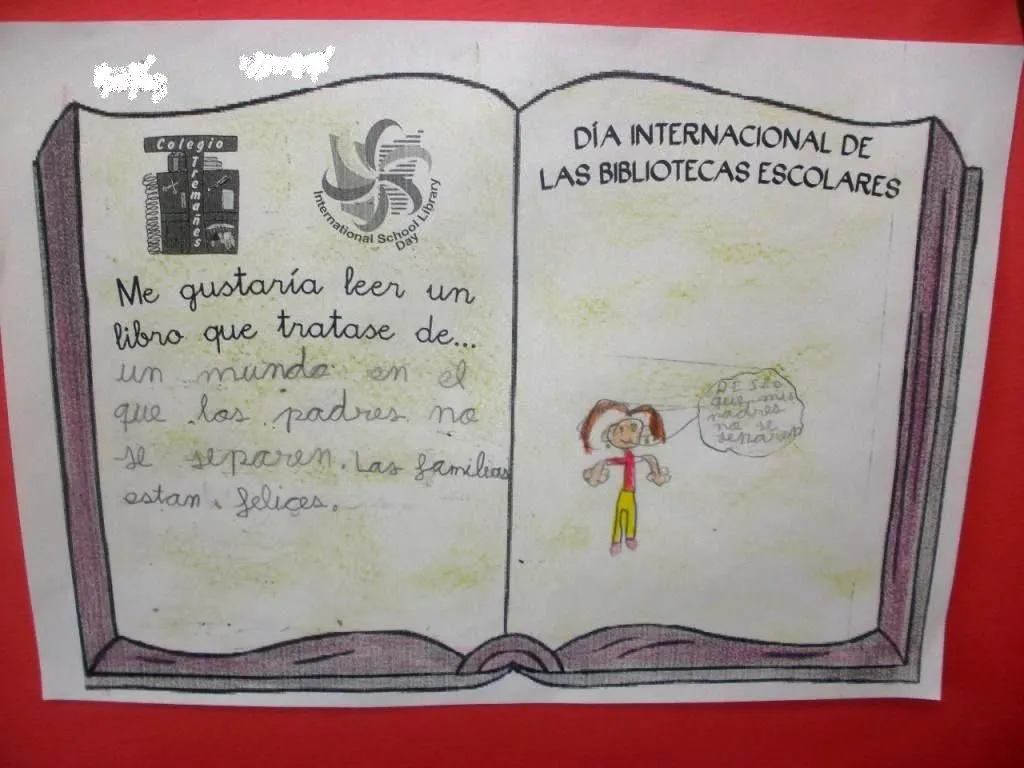 Colegio
Tremañes
International School Library
Day
Me gustaría leer un
libro que tratase de...
un mundo en el
que los padres no
se separen. Las familias
estan felices.
DÍA INTERNACIONAL DE
LAS BIBLIOTECAS ESCOLARES
DESEO
que mis
padres
no se
separen